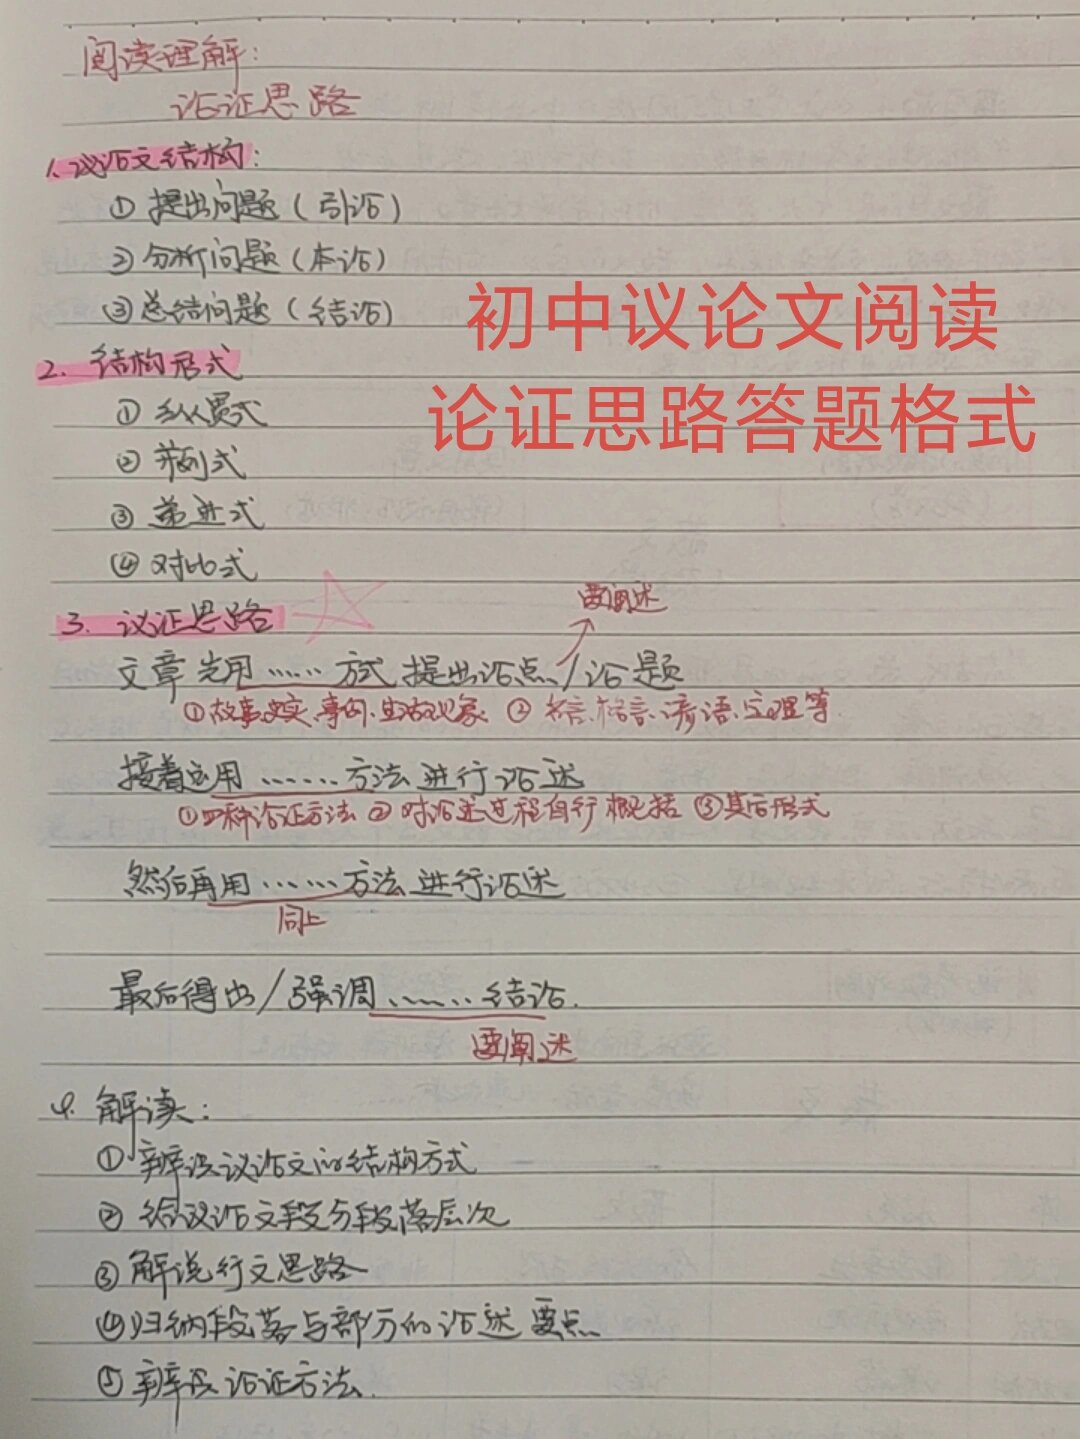 阅读理解：
论证思路
1. 议论文结构：
① 提出问题（引论）
② 分析问题（本论）
③ 总结问题（结论）
初中议论文阅读
论证思路答题格式
2. 结构形式
① 纵贯式
② 并列式
③ 递进式
④ 对比式
3. 议证思路
要阐述
文章先用……方式提出论点/论题
①故事史实、事例、生活现象 ② 名言、格言、谚语、定理等
接着运用……方法进行论述
①四种论证方法 ② 对论述过程自行概括 ③其后形式
然后再用……方法进行论述
同上
最后得出/强调……结论.
要阐述
4. 解读：
① 辨识议论文的结构方式
② 给议论文段分段落层次
③ 解说行文思路
④ 归纳段落与部分的论述要点
⑤ 辨识论证方法.